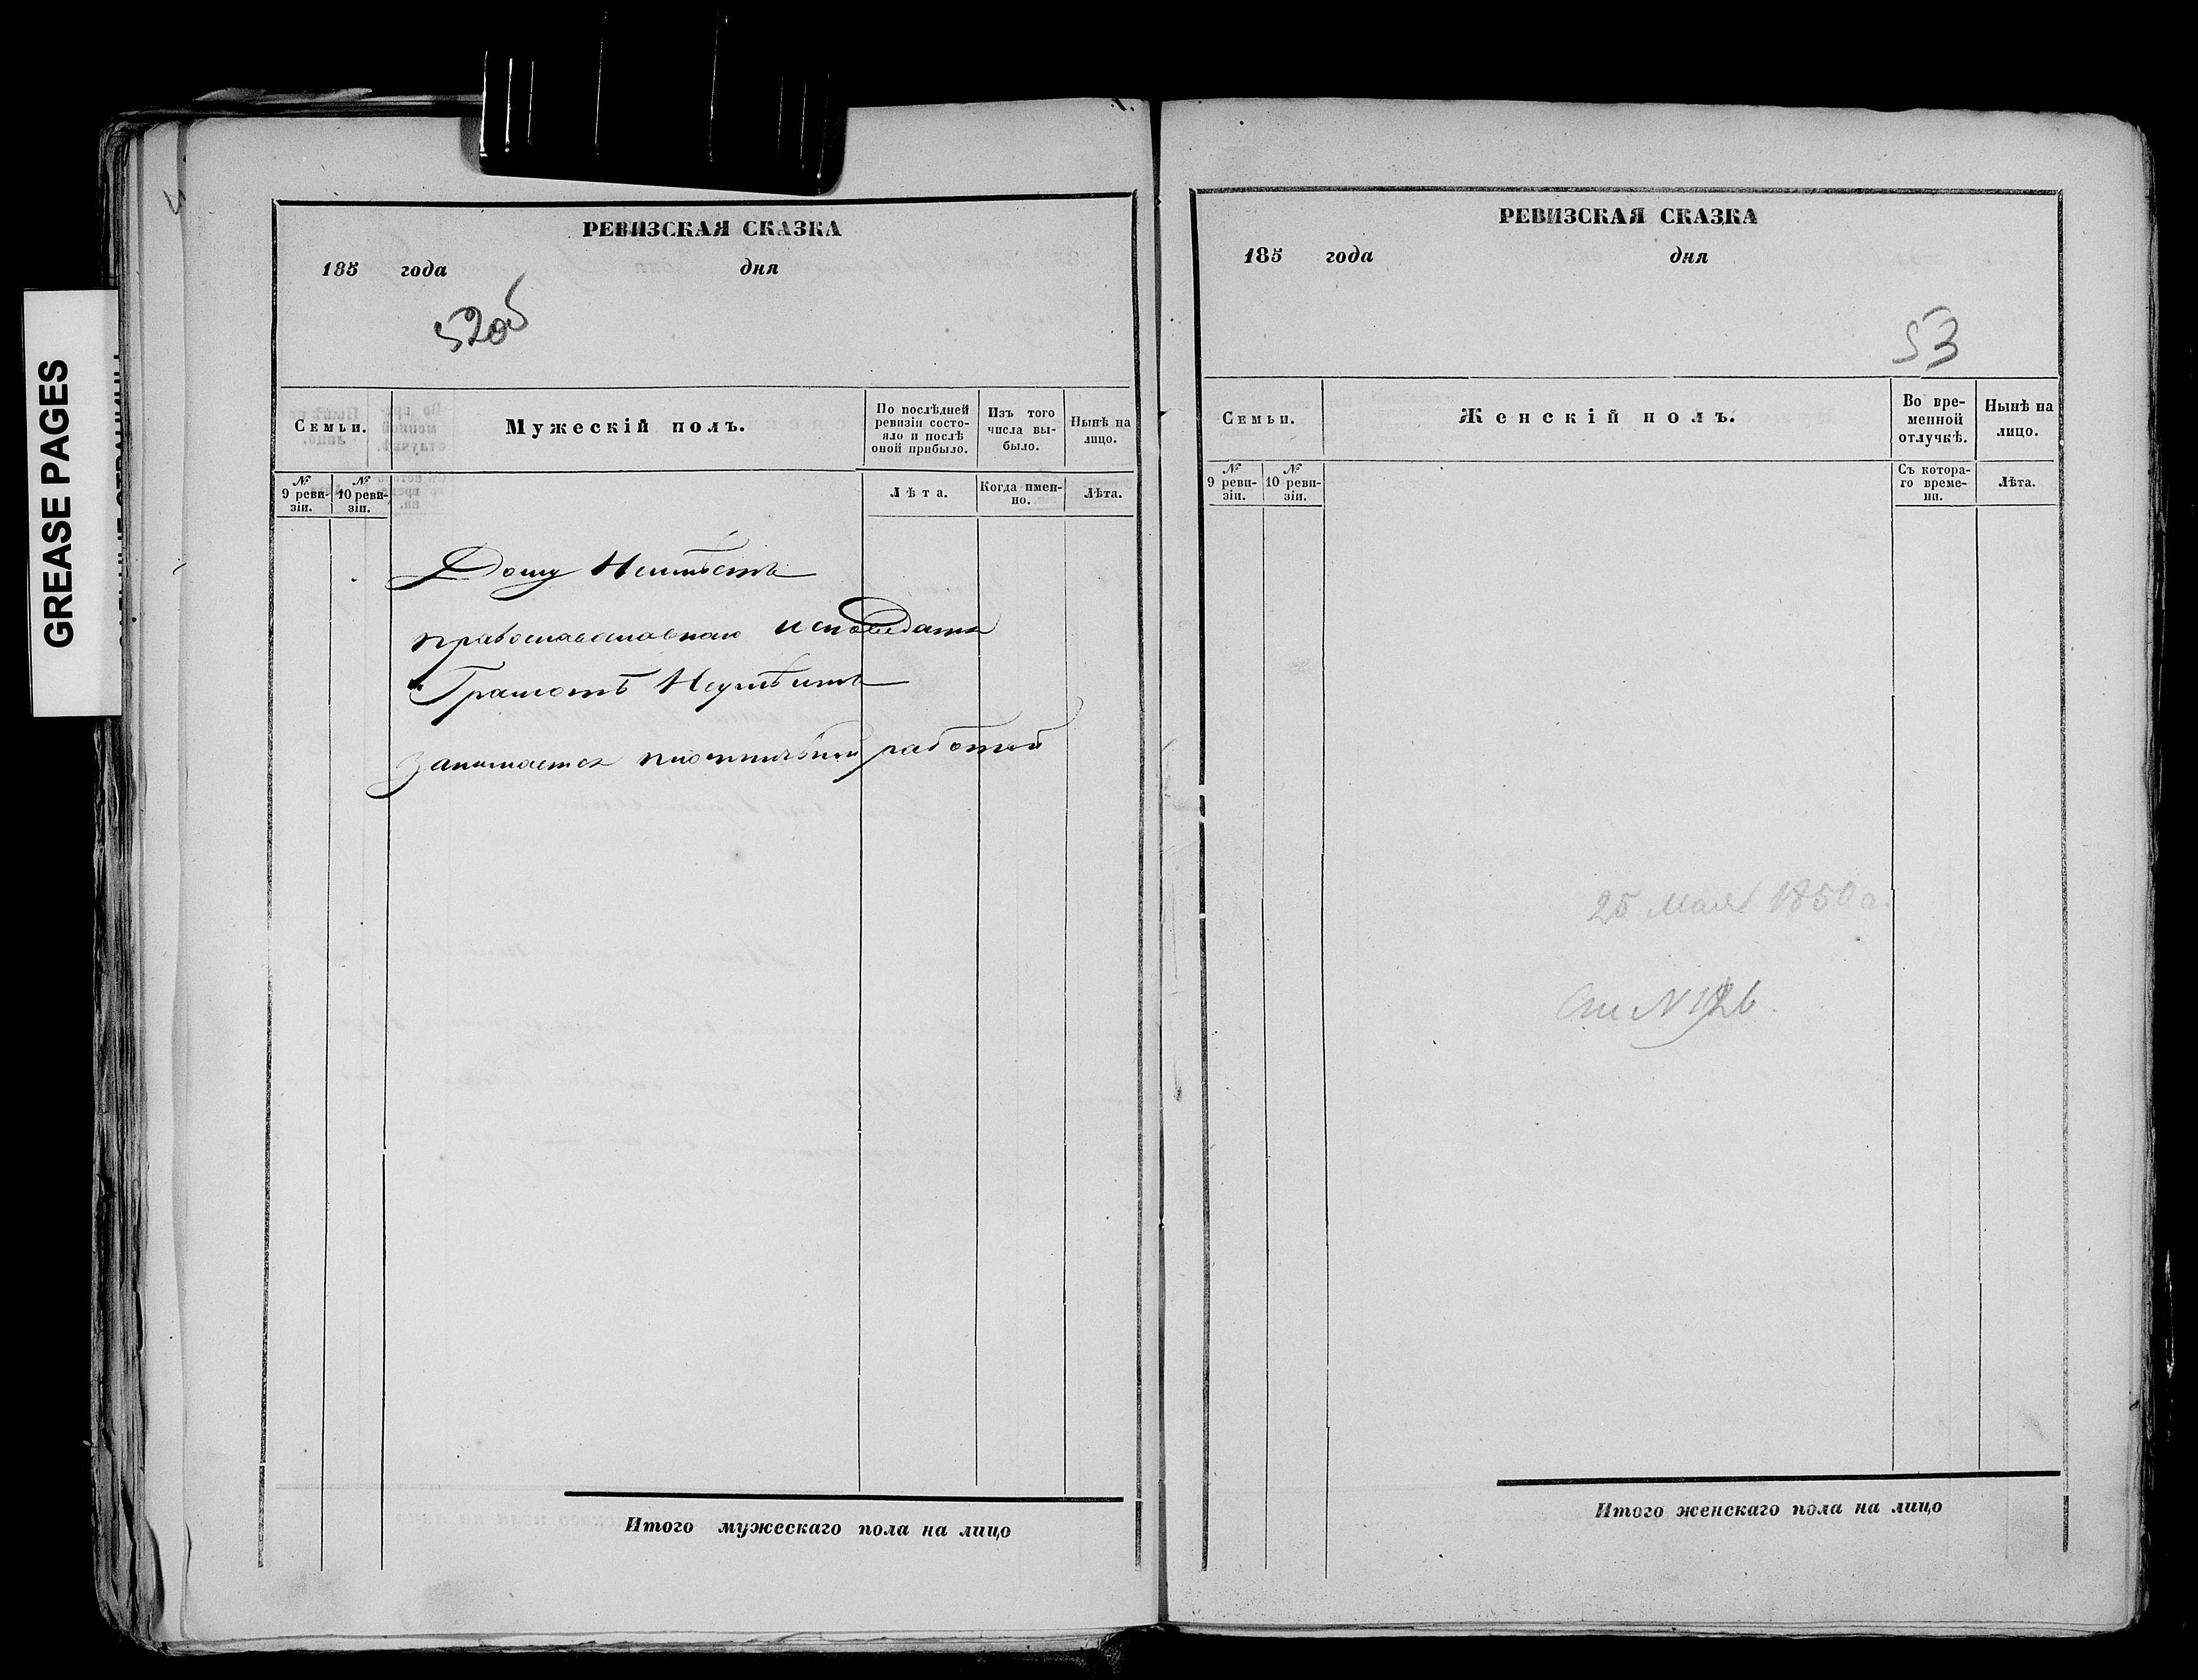 GREASE PAGES
РЕВИЗСКАЯ СКАЗКА
185 года дня
52об
Семьи.
Мужескій полъ.
По послѣдней ревизіи состо-
яло и послѣ оной прибыло.
Изъ того числа вы-
было.
Нынѣ на лицо.
№ 9 реви-
зіи.
№ 10 реви-
зіи.
Лѣта.
Когда имен-
но.
Лѣта.
Дому Неимѣетъ
православославнаго исповеданія
Грамотѣ Неумѣитъ
Занимается работой
Итого мужескаго пола на лицо
РЕВИЗСКАЯ СКАЗКА
185 года дня
53
Семьи.
Женскій полъ.
Во вре-
менной
отлучкѣ.
Нынѣ на
лицо.
№ 9 реви-
зіи.
№ 10 реви-
зіи.
Съ котора-
го време-
ни.
Лѣта.
25 Мая 1850 г.
Итого женскаго пола на лицо